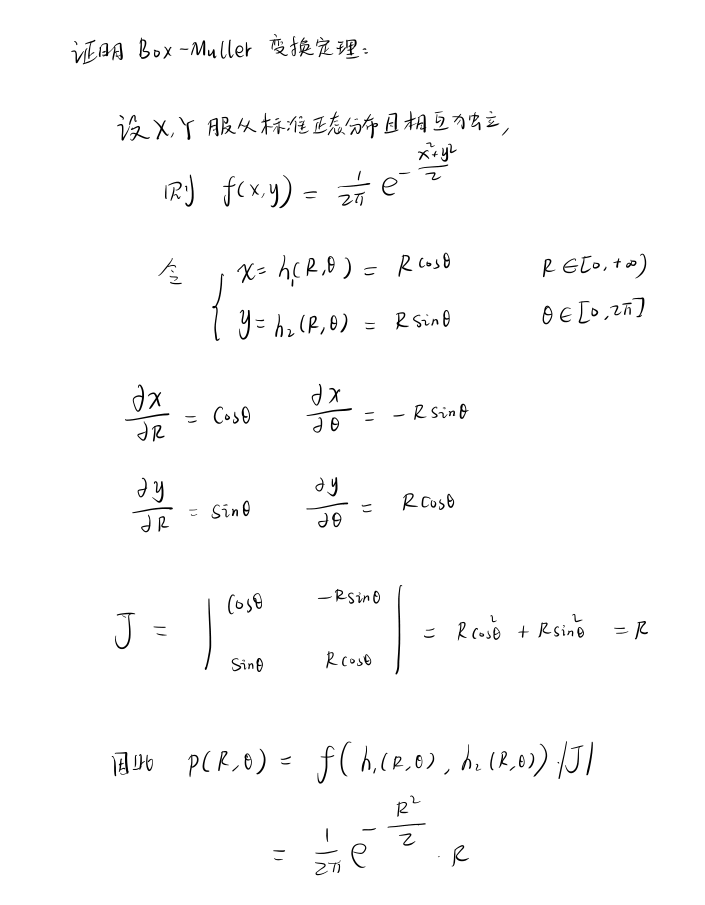 证明 Box-Muller 变换定理:
设 X,Y 服从标准正态分布且相互独立,
则 f(x,y) = \frac{1}{2π} e^{-\frac{x^2+y^2}{2}}
令 { x = h_1(R,θ) = R cosθ R∈[0,+∞)
y = h_2(R,θ) = R sinθ θ∈[0,2π]
\frac{∂x}{∂R} = cosθ \frac{∂x}{∂θ} = -R sinθ
\frac{∂y}{∂R} = sinθ \frac{∂y}{∂θ} = R cosθ
J = | cosθ -R sinθ
sinθ R cosθ | = R cos^2θ + R sin^2θ = R
因此 P(R,θ) = f(h_1(R,θ), h_2(R,θ)) |J|
= \frac{1}{2π} e^{-\frac{R^2}{2}} · R